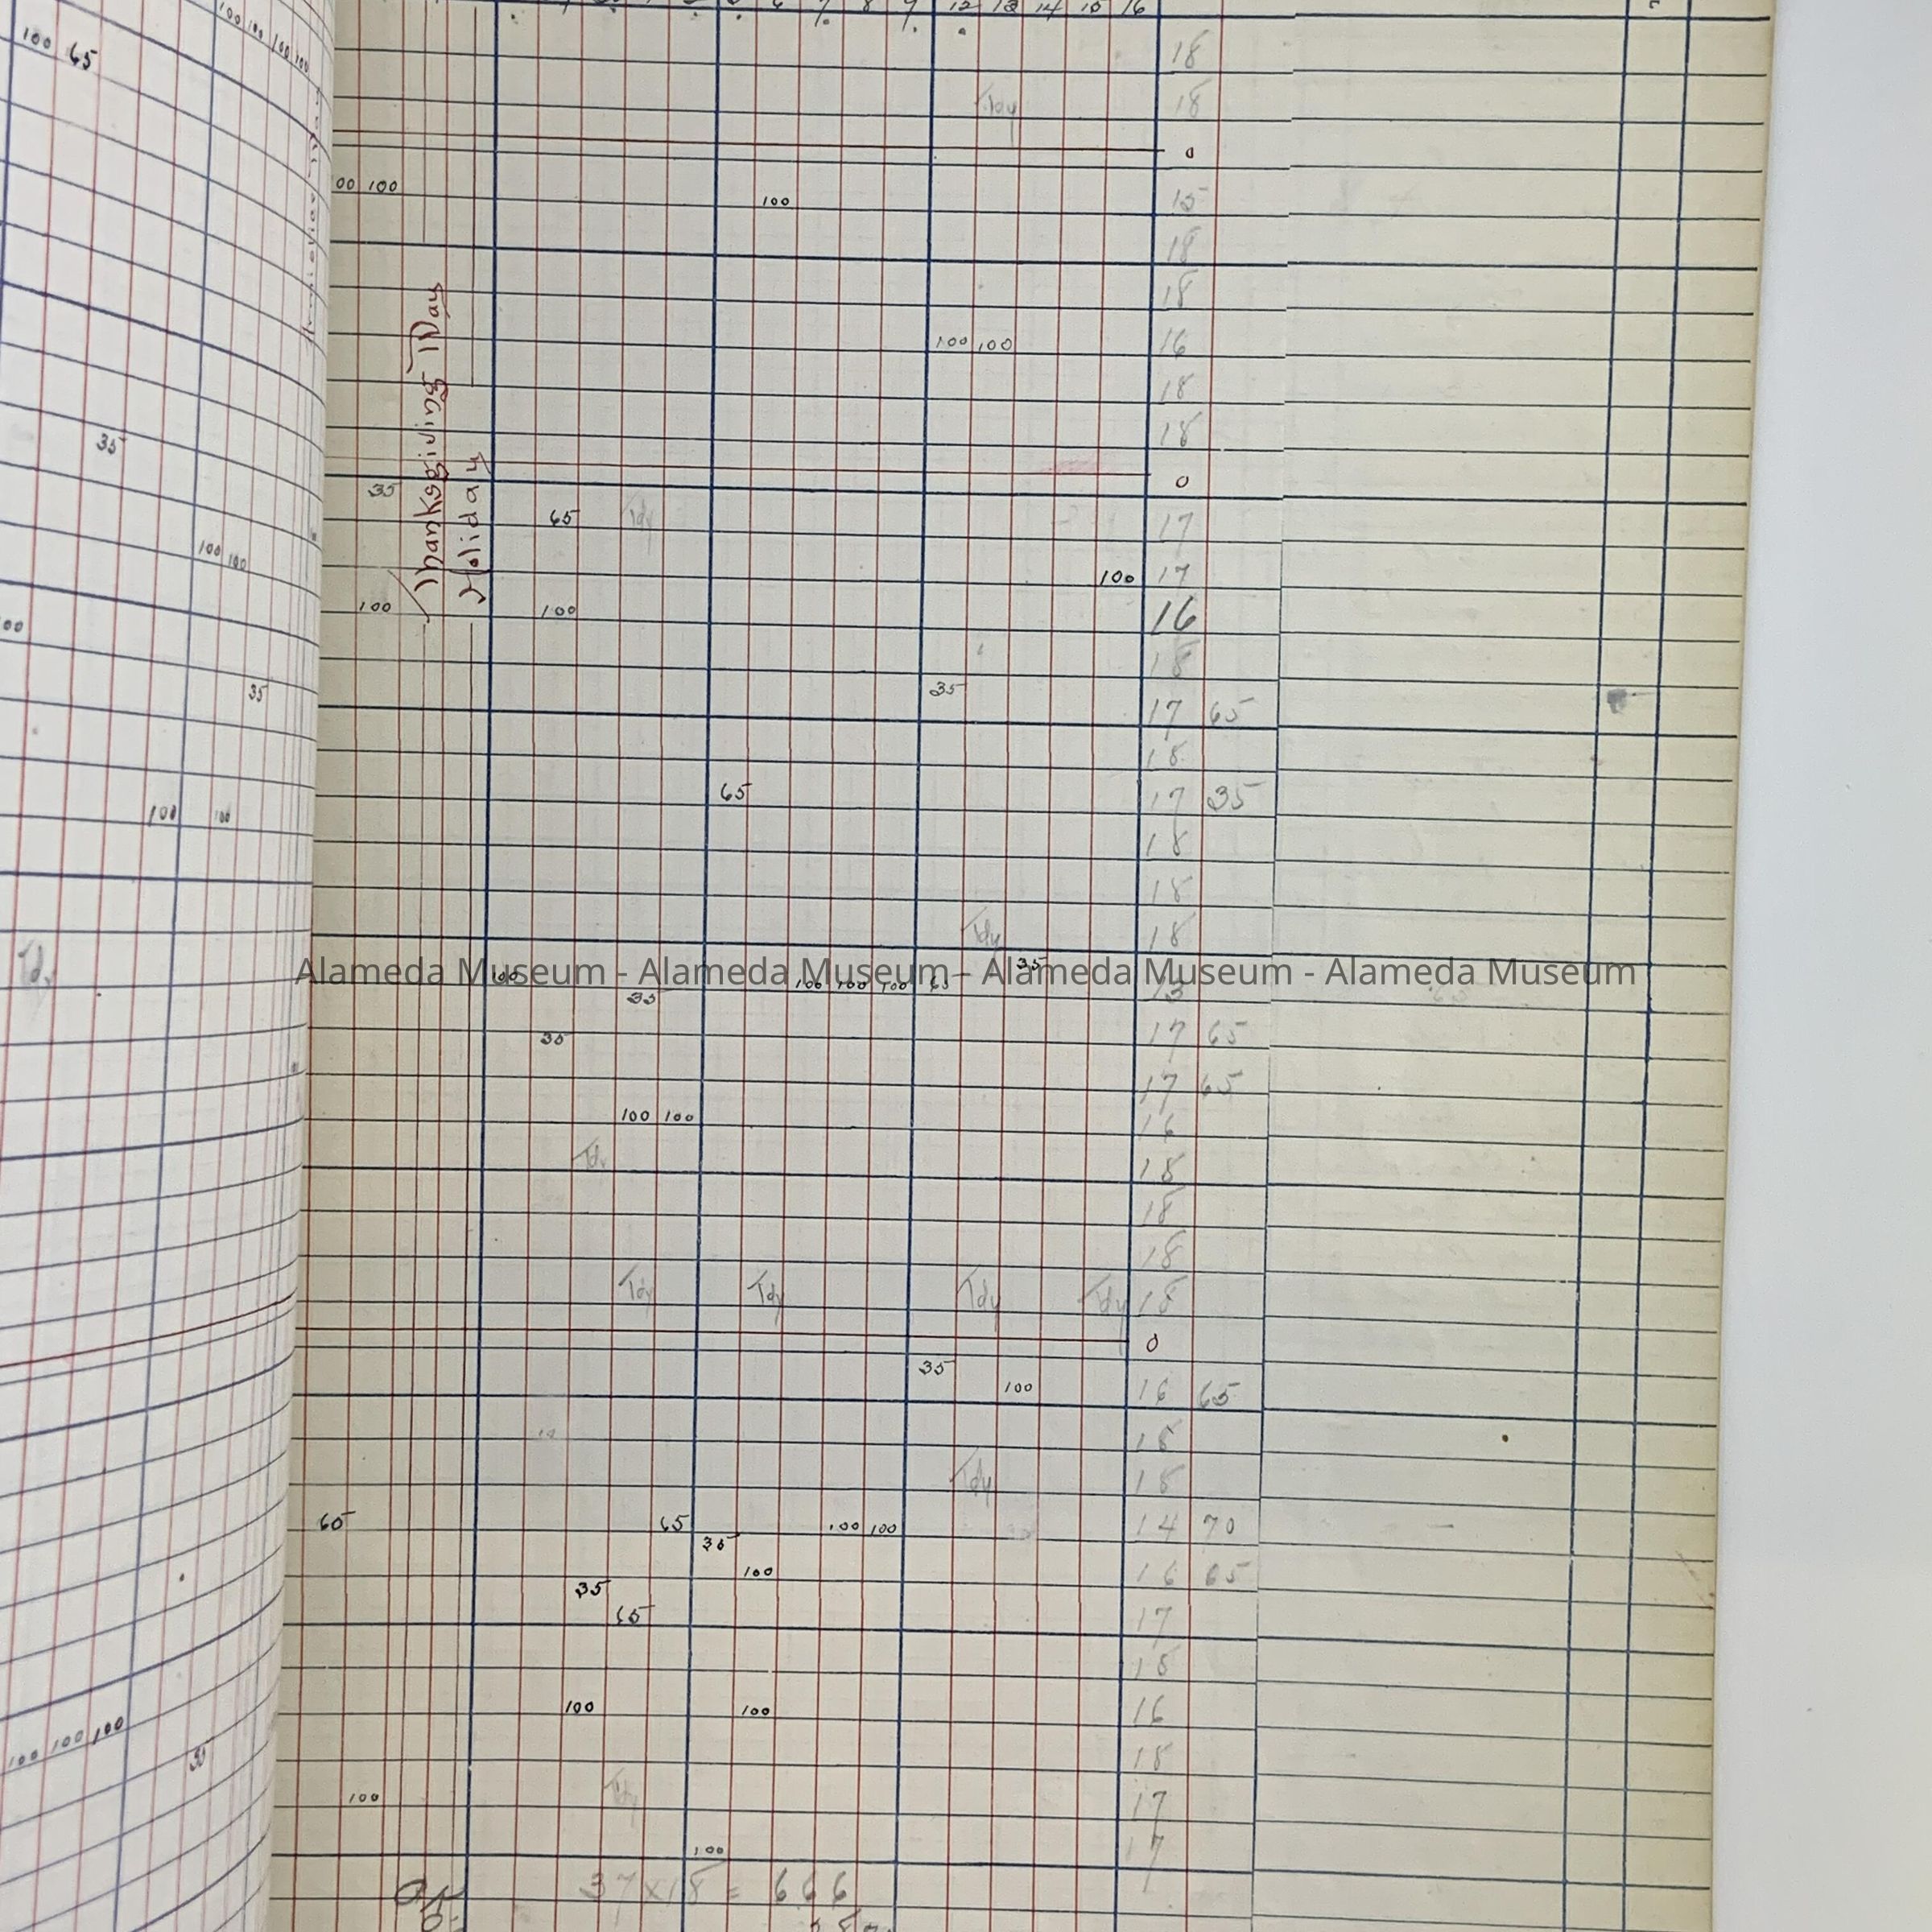 6 7 8 9 12 13 14 15 16
100 100 100 100
100 65
18
Tdy 18
0
00 100 100 15
18
18
100 100 16
18
18
Thanksgiving Day
Holiday
0
35
35 65 Tdy 17
100 100
100 17
100 100 16
00
18
35 35 17 65
18
65 17 35
100 100 18
18
Tdy 18
Tdy
Alameda Museum - Alameda Museum - Alameda Museum - Alameda Museum
100 35 100 100 100 65 35 13
35 17 65
17 65
100 100 16
Tdy 18
18
18
Tdy Tdy Tdy Tdy 18
0
35 100 16 65
18
Tdy 18
65 65 100 100 14 70
35 100 16 65
35 65 17
18
100 100 16
100 100 100
35 18
100 Tdy 17
100 17
37 x 18 = 666